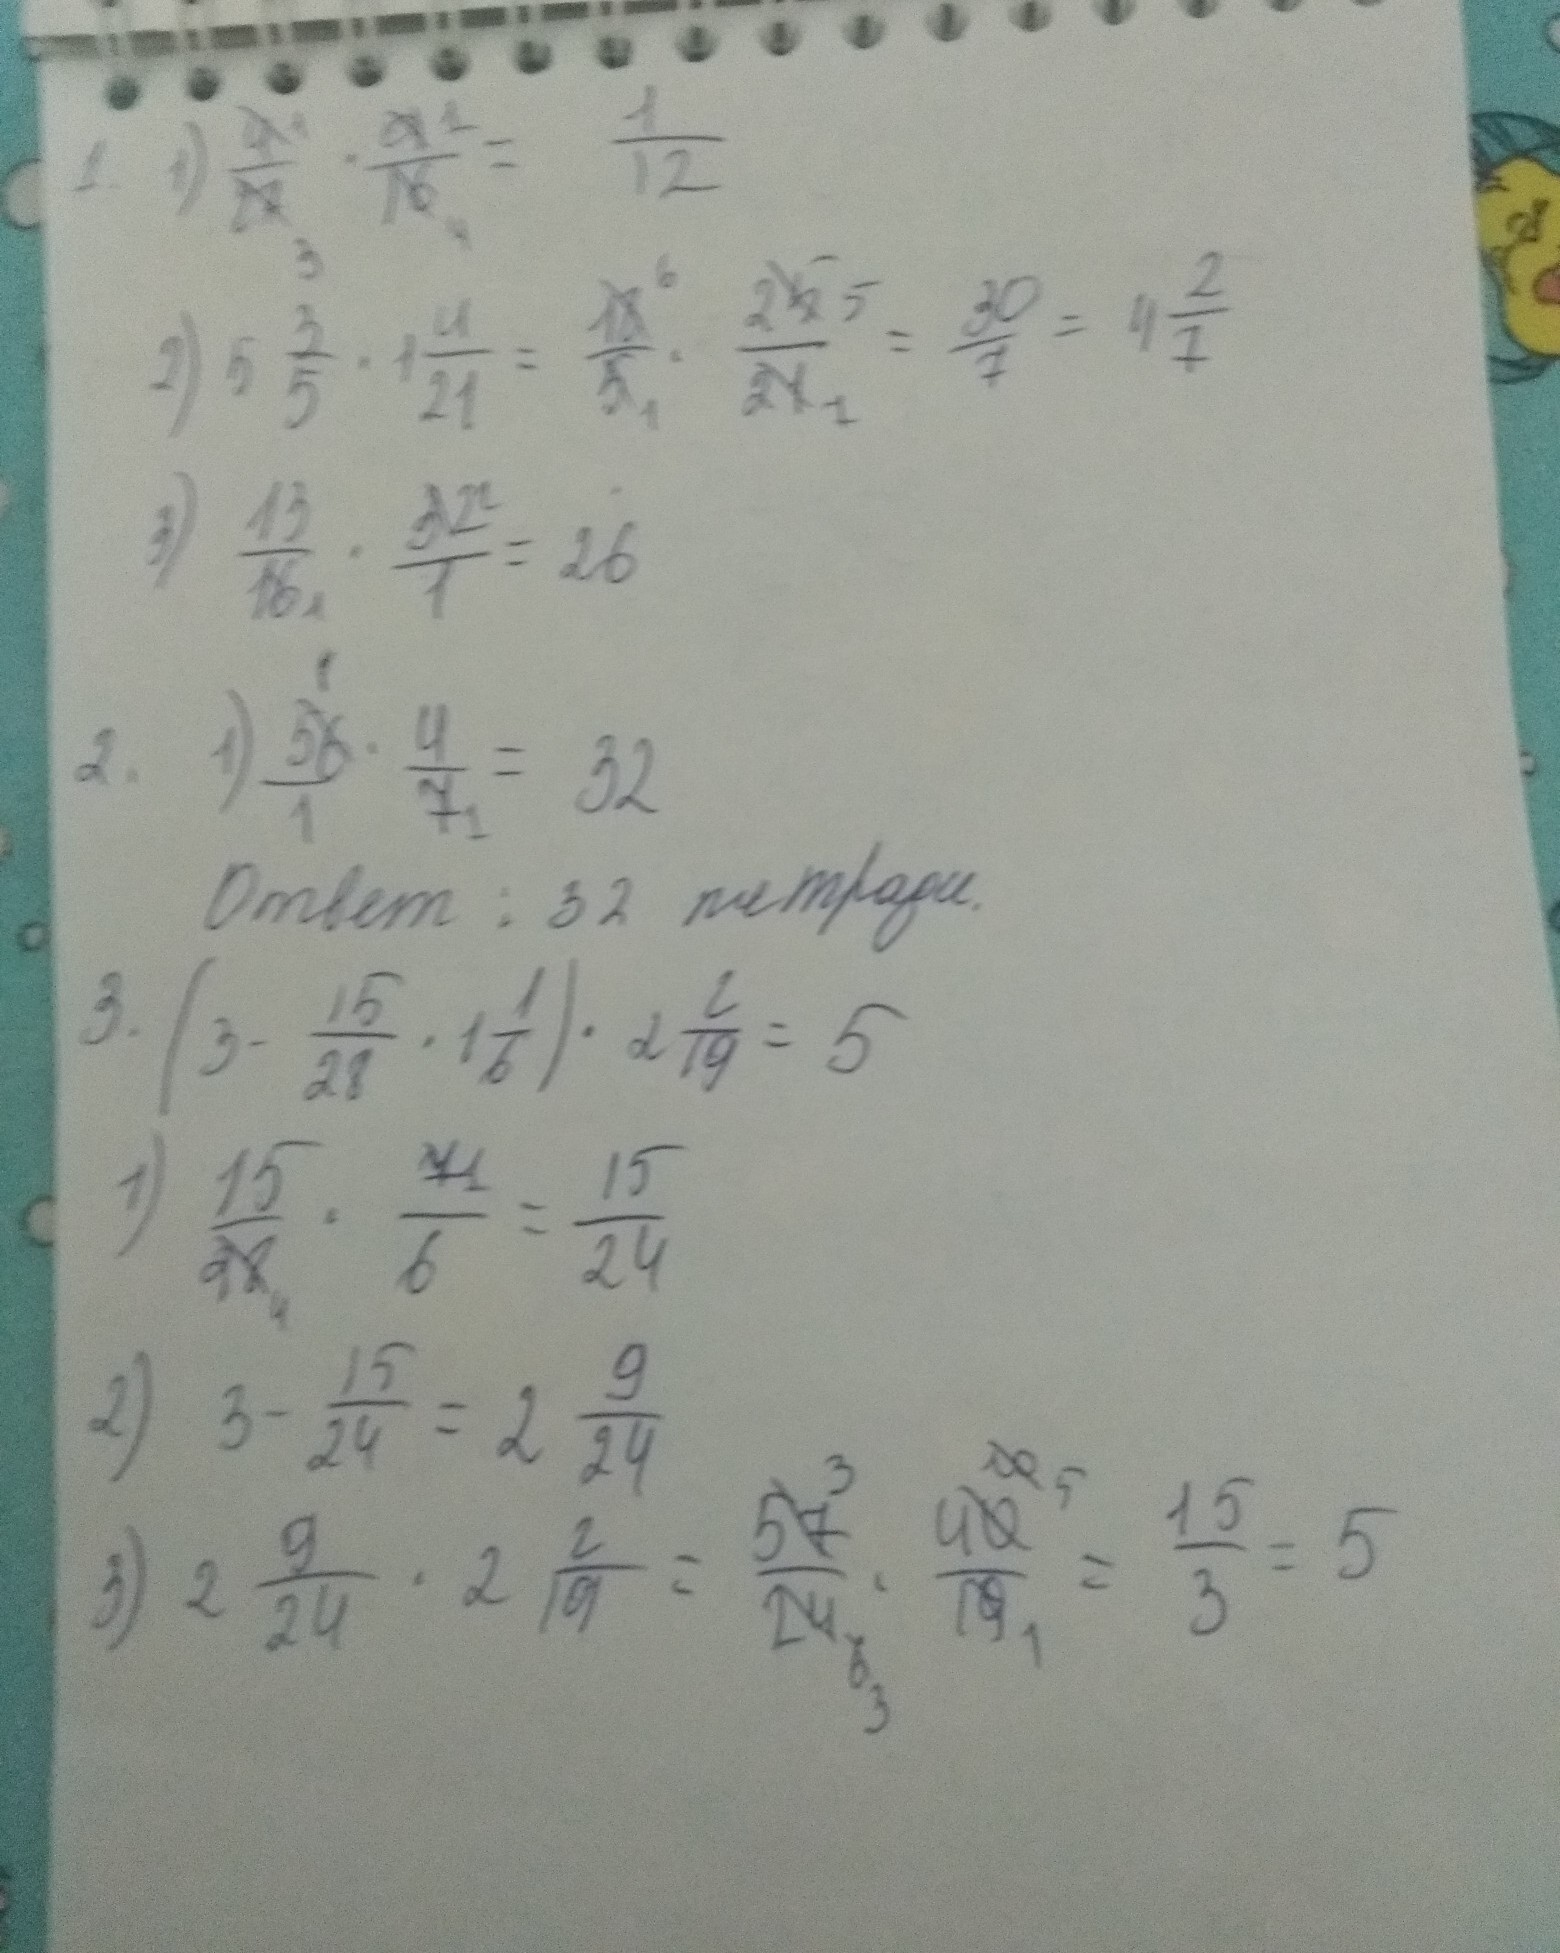 1. 1) 4/27 · 9/16 = 1/12
2) 5 3/5 · 1 4/21 = 18/5 · 25/21 = 30/7 = 4 2/7
3) 13/16 · 32/1 = 26
2. 1) 56/1 · 4/7 = 32
Ответ : 32 тетради.
3. (3 - 15/28 · 1 1/6) · 2 2/19 = 5
1) 15/28 · 7/6 = 15/24
2) 3 - 15/24 = 2 9/24
3) 2 9/24 · 2 2/19 = 57/24 · 40/19 = 15/3 = 5